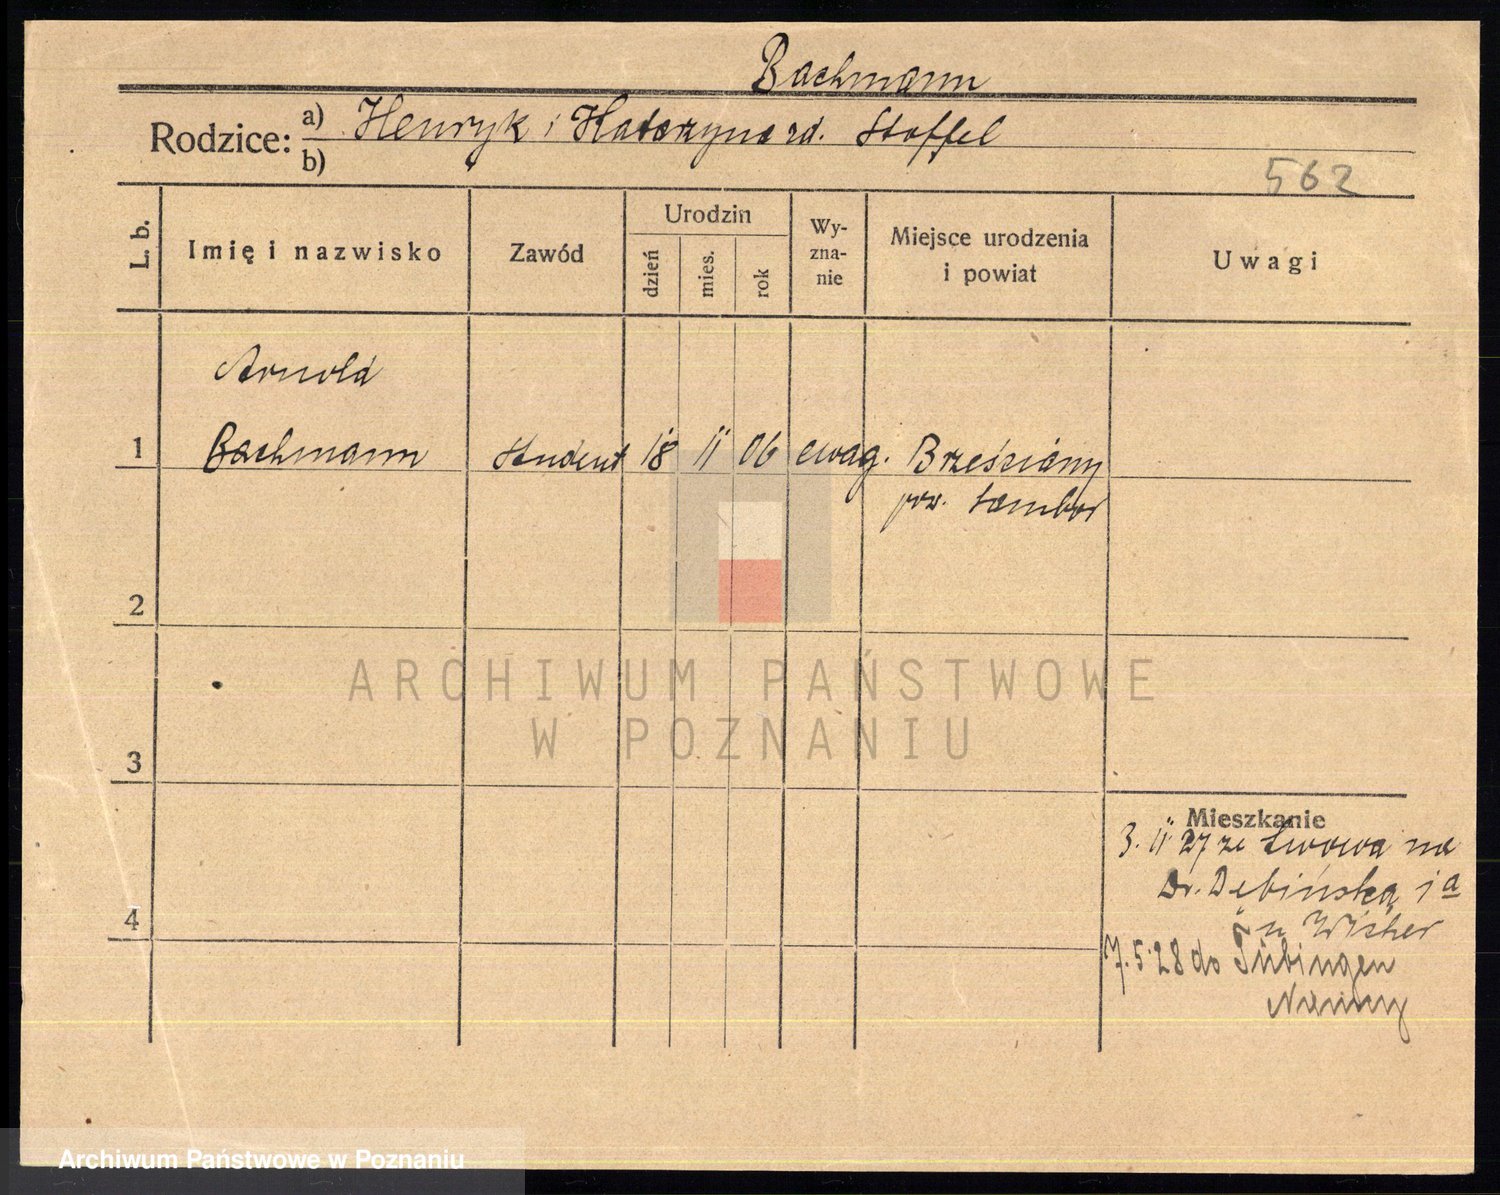 Bachmann
Rodzice: a) Henryk i Katarzyna zd. Stoffel
b)
562
L. b.
Imię i nazwisko
Zawód
Urodzin
dzień
mies.
rok
Wy-
zna-
nie
Miejsce urodzenia
i powiat
Uwagi
Arnold
1 Bachmann Student 18 II 06 ewag. Brześciany
pow. Sambor
2
3
4
ARCHIWUM PAŃSTWOWE
W POZNANIU
Mieszkanie
3. II 27 ze Lwowa na
Dr. Dębińską 1a
u
7.5.28 do Tübingen
Niemcy
Archiwum Państwowe w Poznaniu